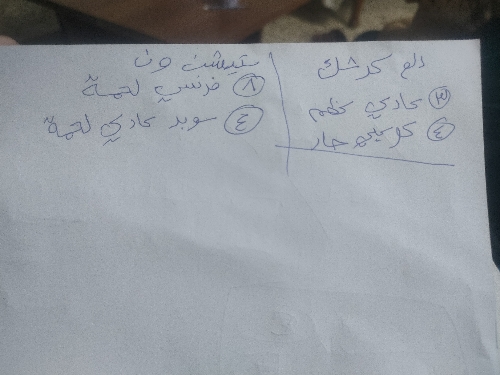 دلع كرشك
٣ عادي
٤ كلاسيك حار
ستيشن ون
٨ فرنسي لحمة
٤ سوبر عادي لحمة